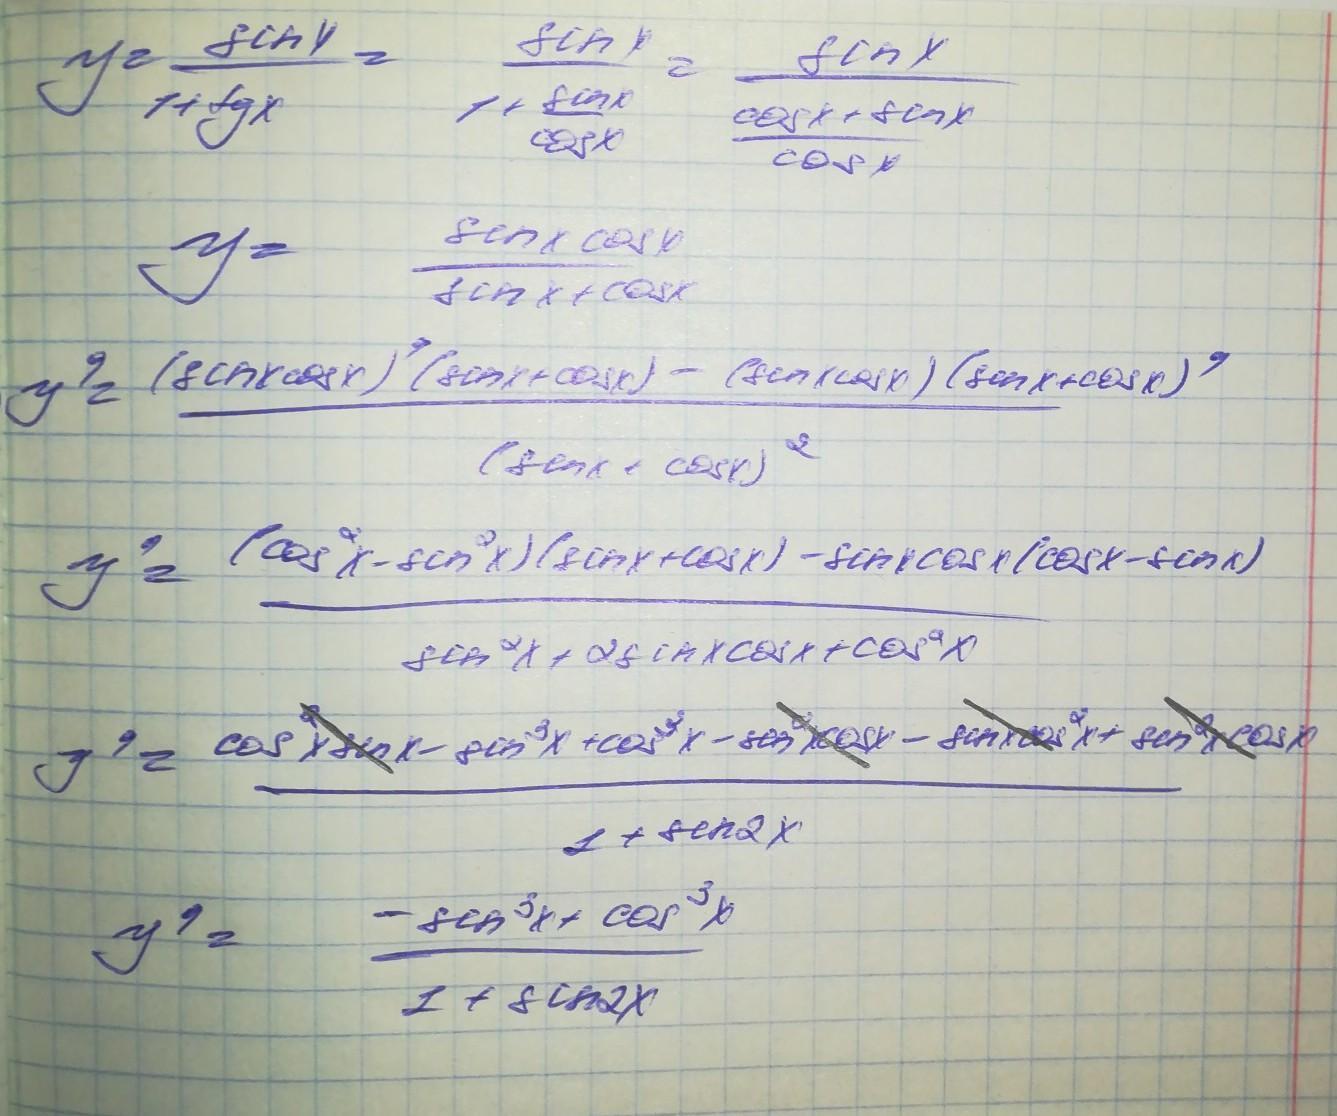 y = sinx / (1+tgx) = sinx / (1 + sinx/cosx) = sinx / ((cosx + sinx)/cosx)
y = sinx cosx / (sinx + cosx)
y' = ((sinxcosx)'(sinx+cosx) − (sinxcosx)(sinx+cosx)') / (sinx + cosx)²
y' = ((cos²x − sin²x)(sinx+cosx) − sinxcosx(cosx−sinx)) / (sin²x + 2sinxcosx + cos²x)
y' = (cos²x sinx − sin³x + cos³x − sin²xcosx − sinxcos²x + sin²xcosx) / (1 + sin2x)
y' = (−sin³x + cos³x) / (1 + sin2x)